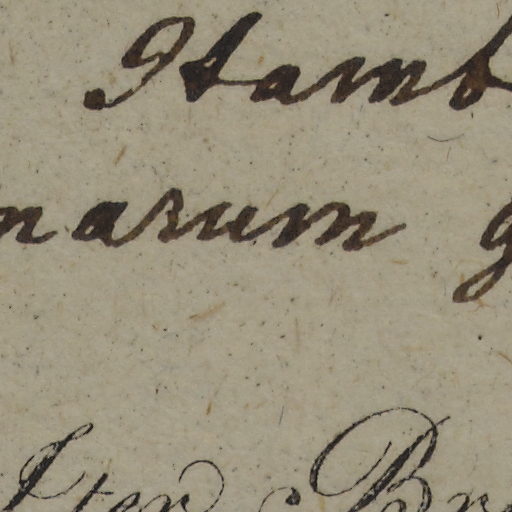 Itamb
narum g
Iter Br